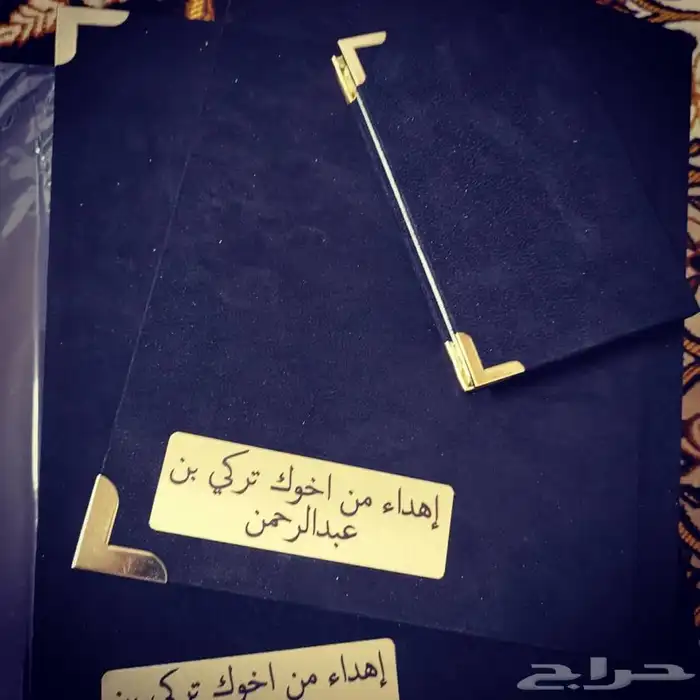 إهداء من اخوك تركي بن
عبدالرحمن
إهداء من اخوك تركي بن
حراج